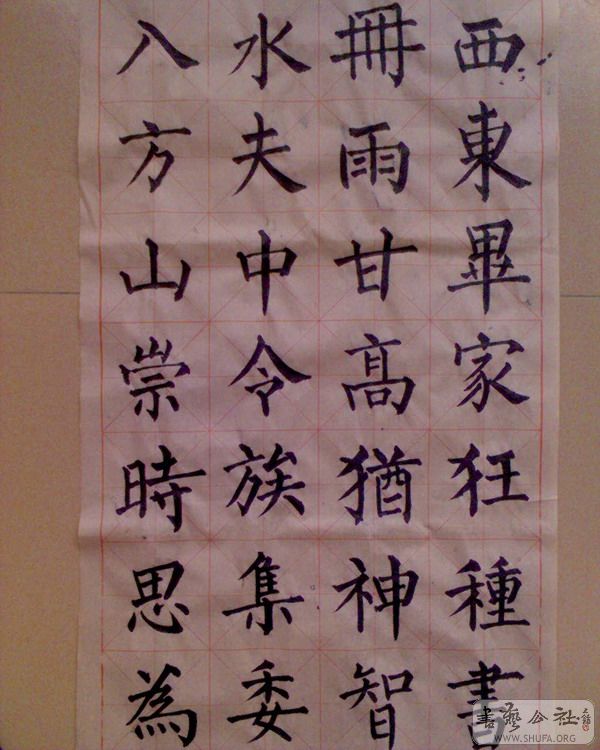 西東畢家狂種書
冊雨甘髙猶神智
水夫中令族集委
八方山崇時思為
書藝公社
WWW.SHUFA.ORG